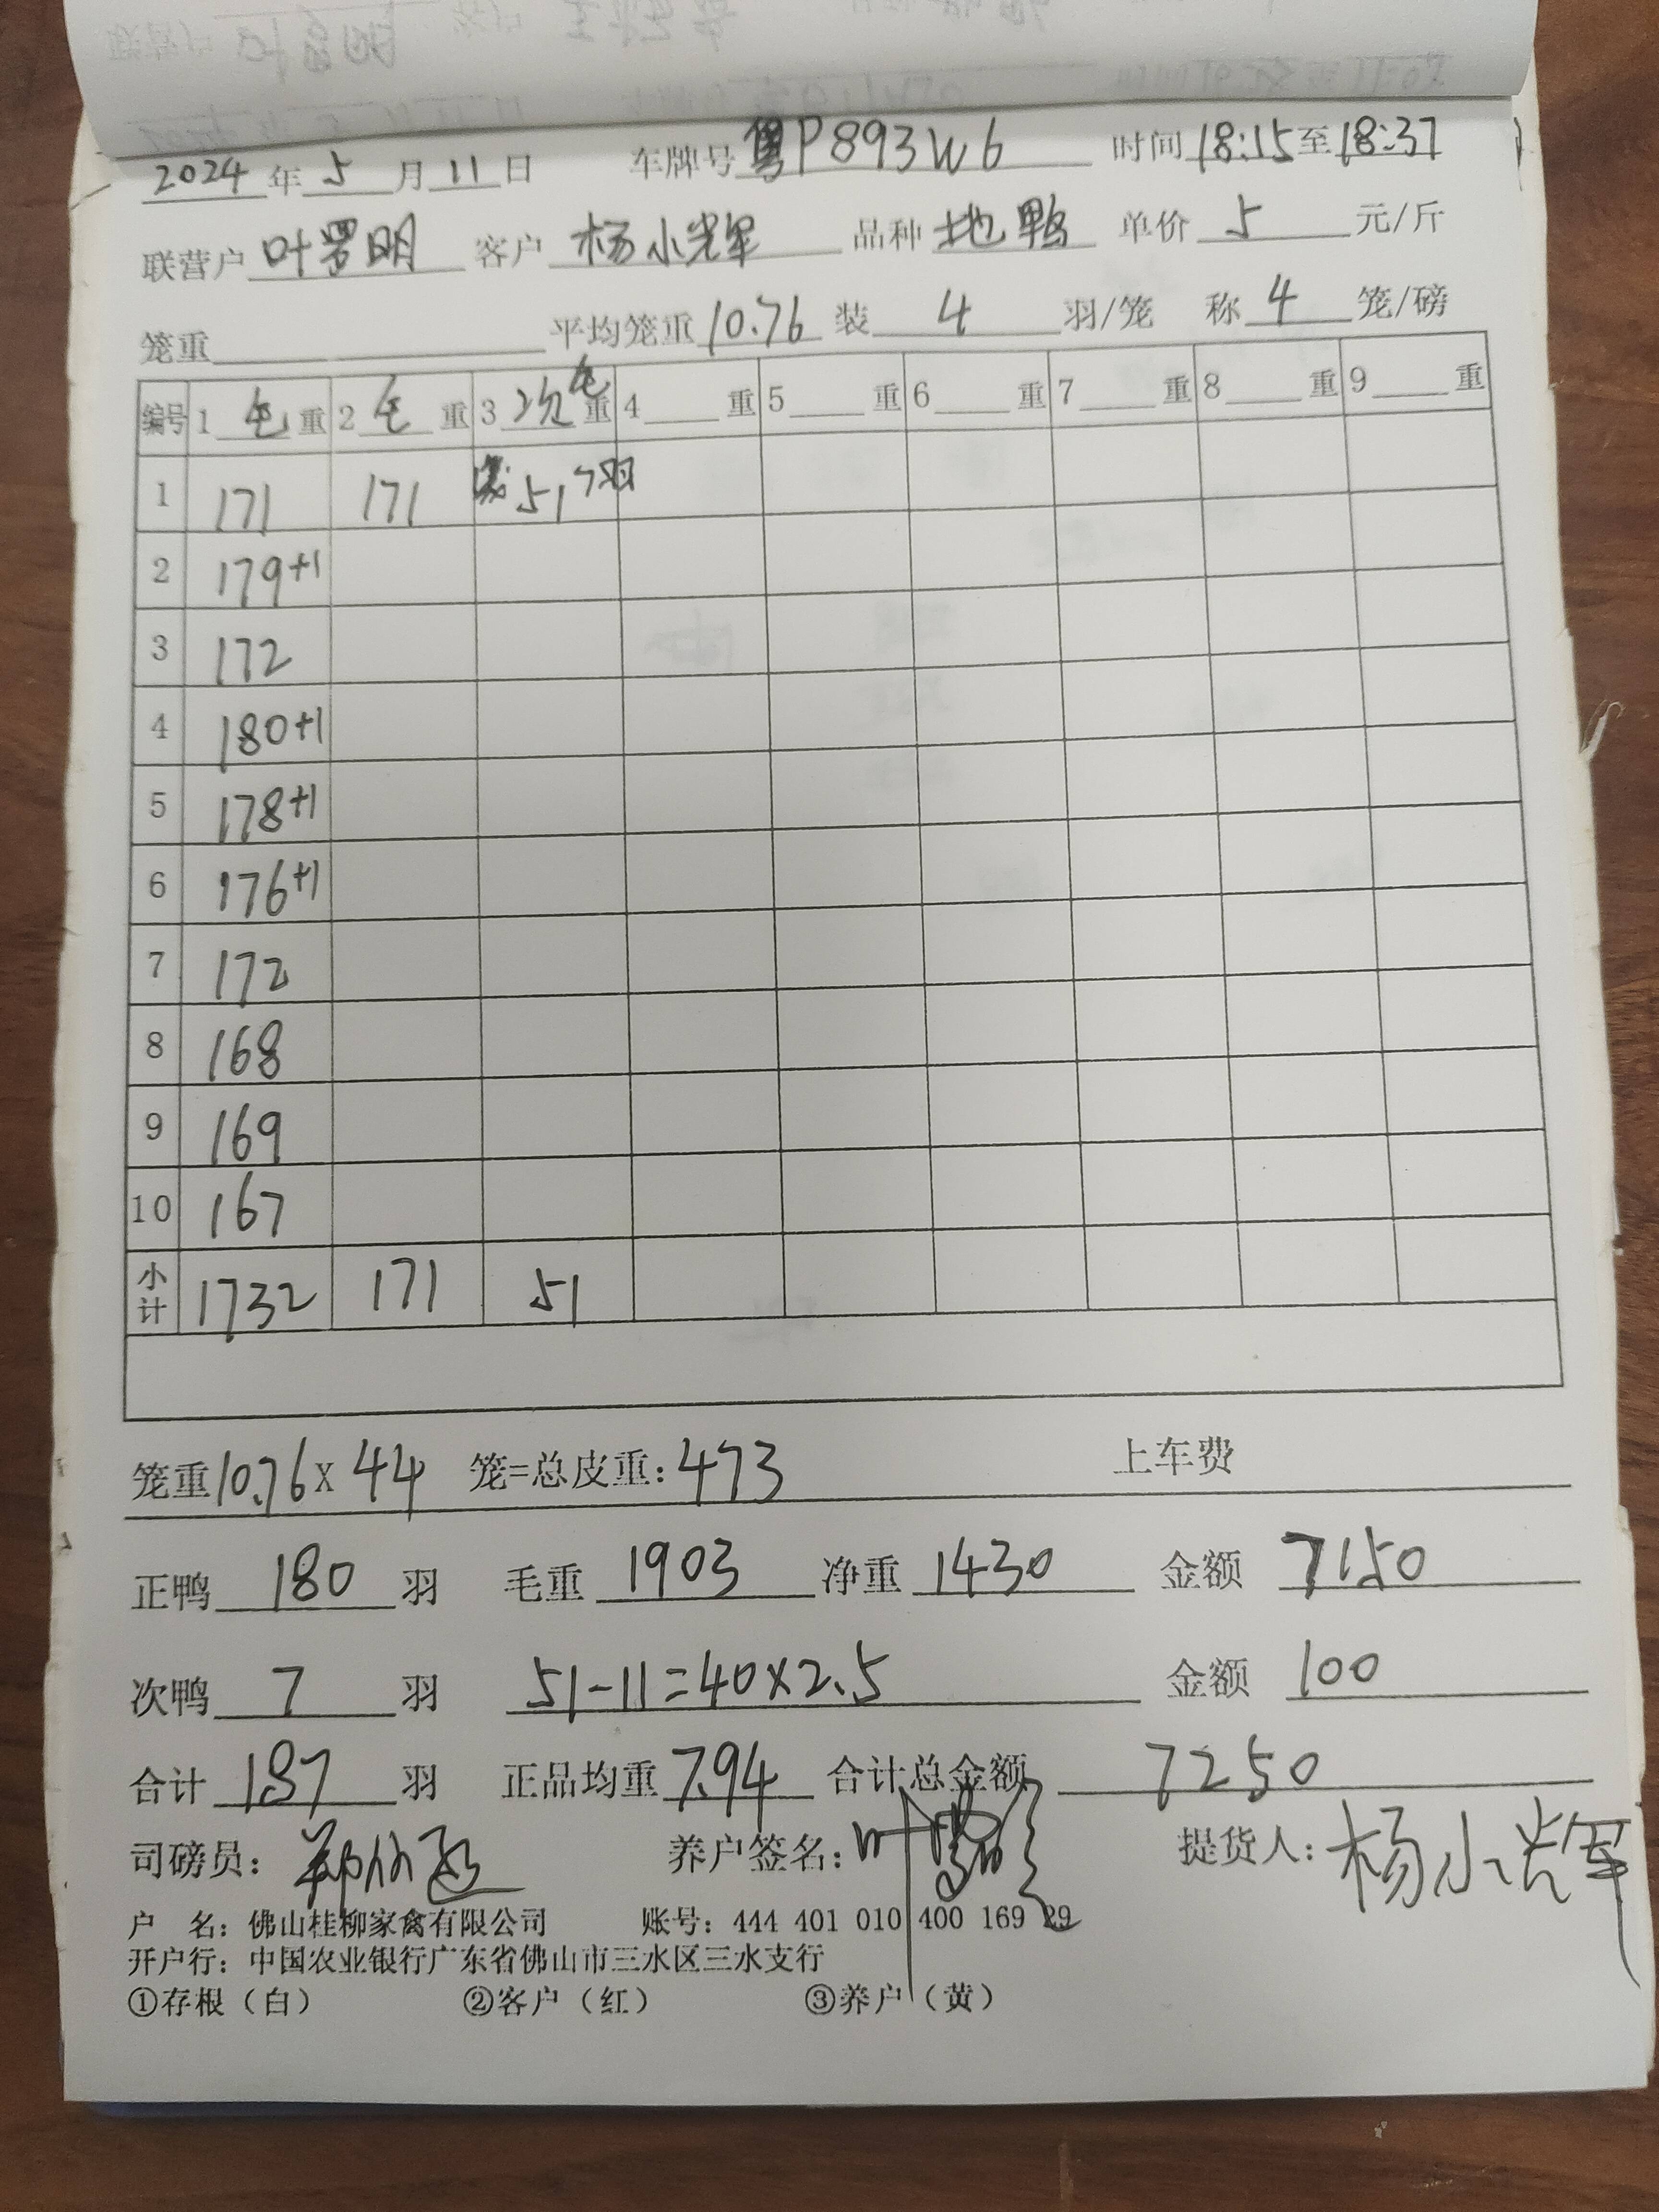 2024年5月11日 车牌号 粤P893W6 时间 18:15至18:37
联营户 叶罗明 客户 杨小辉 品种 地鸭 单价 5 元/斤
笼重 平均笼重 10.76 装 4 羽/笼 称 4 笼/磅
编号 1 毛 重 2 毛 重 3 次毛 重 4 重 5 重 6 重 7 重 8 重 9 重
1 171 171 51 7羽
2 179+1
3 172
4 180+1
5 178+1
6 176+1
7 172
8 168
9 169
10 167
小计 1732 171 51
笼重10.76X 44 笼=总皮重: 473 上车费
正鸭 180 羽 毛重 1903 净重 1430 金额 7150
次鸭 7 羽 51-11=40×2.5 金额 100
合计 187 羽 正品均重 7.94 合计总金额 7250
司磅员: 养户签名: 提货人: 杨小辉
户 名: 佛山桂柳家禽有限公司 账号: 444 401 010 400 169 29
开户行: 中国农业银行广东省佛山市三水区三水支行
①存根（白） ②客户（红） ③养户（黄）